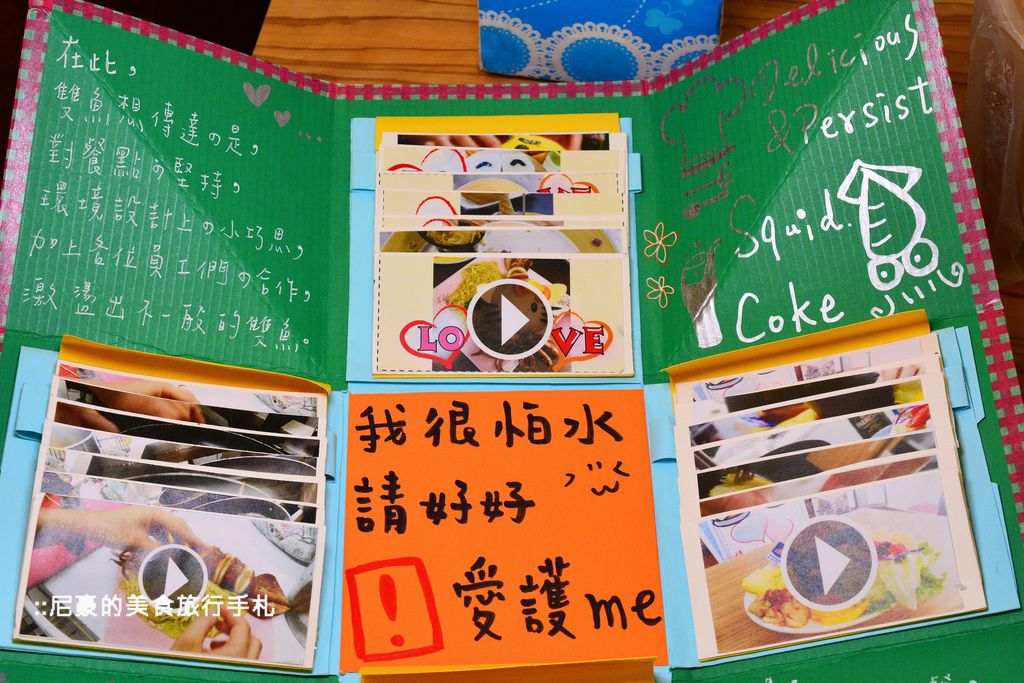 在此，
雙魚想傳達の是，
對餐點の堅持，
環境設計上の小巧思，
加上各位員工們の合作，
激盪出不一般的雙魚。
Delicious
&Persist
Squid.
Coke
LOVE
我很怕水
請好好
! 愛護me
::尼豪的美食旅行手札